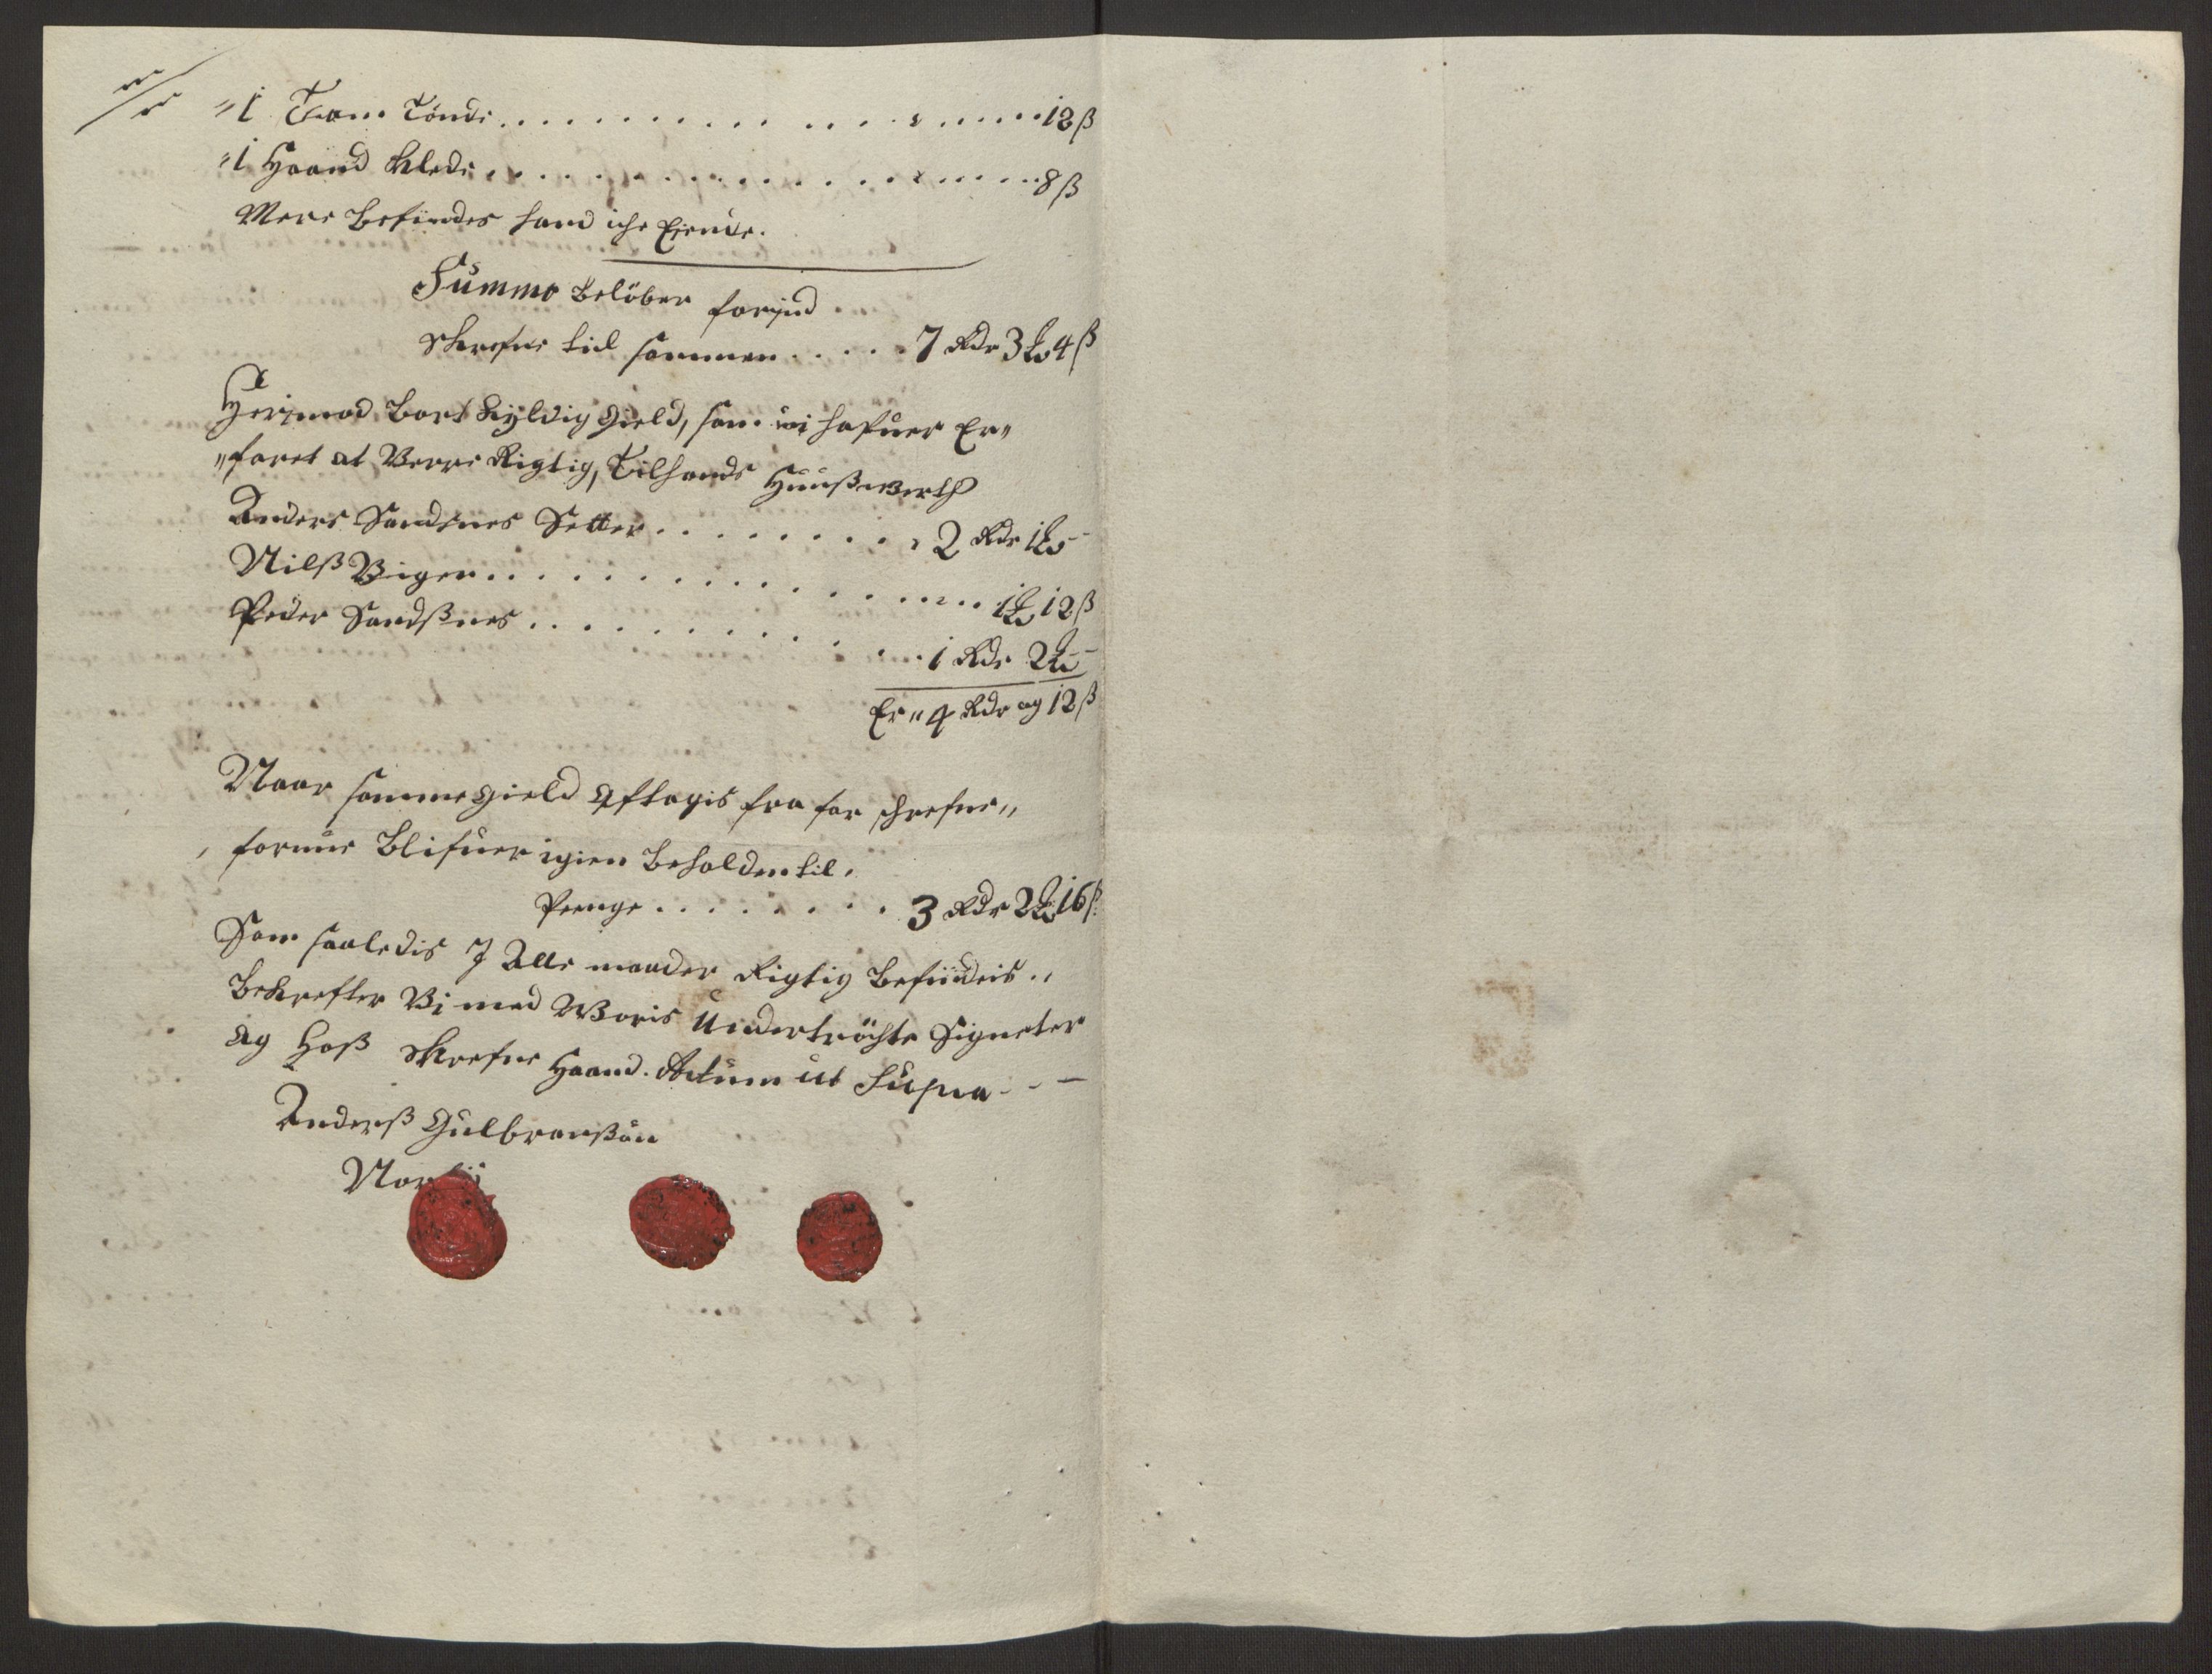 "1 Tram Tönde . . . . . . . . . . . . . . . . . . . . 12 ß
"1 Haand klede . . . . . . . . . . . . . . . . . . . . 8 ß
Mere befindes hand iche Eiende.
Summa belöber forind
skrefne till sammen . . . . . 7 Rdr 3 4 ß
Herimod bort skyldig gield, som wi hafuer Er„
„faret at Verre Rigtig, Tilhands Huußwerth
Anders Sandsnes Setter . . . . . . . . . 2 Rdr 1
Nilß Vigen . . . . . . . . . . . . . . . . 1 12 ß
Peder Sandßnes . . . . . . . . . . . . . 1 Rdr 2
Er " 4 Rdr og 12 ß
Naar samme gield aftagis fra for schrefne„
formue blifuer igien beholden til.
Penge . . . . . . . . 3 Rdr 2 16 ß
Som saaledis J Alle maader Rigtig befindeis.,
bekrefter Vi med Woris Undertröchte Signeter
og hoß skrefne Haand. Actum ut Supra - - -
Anderß Gulbranßön